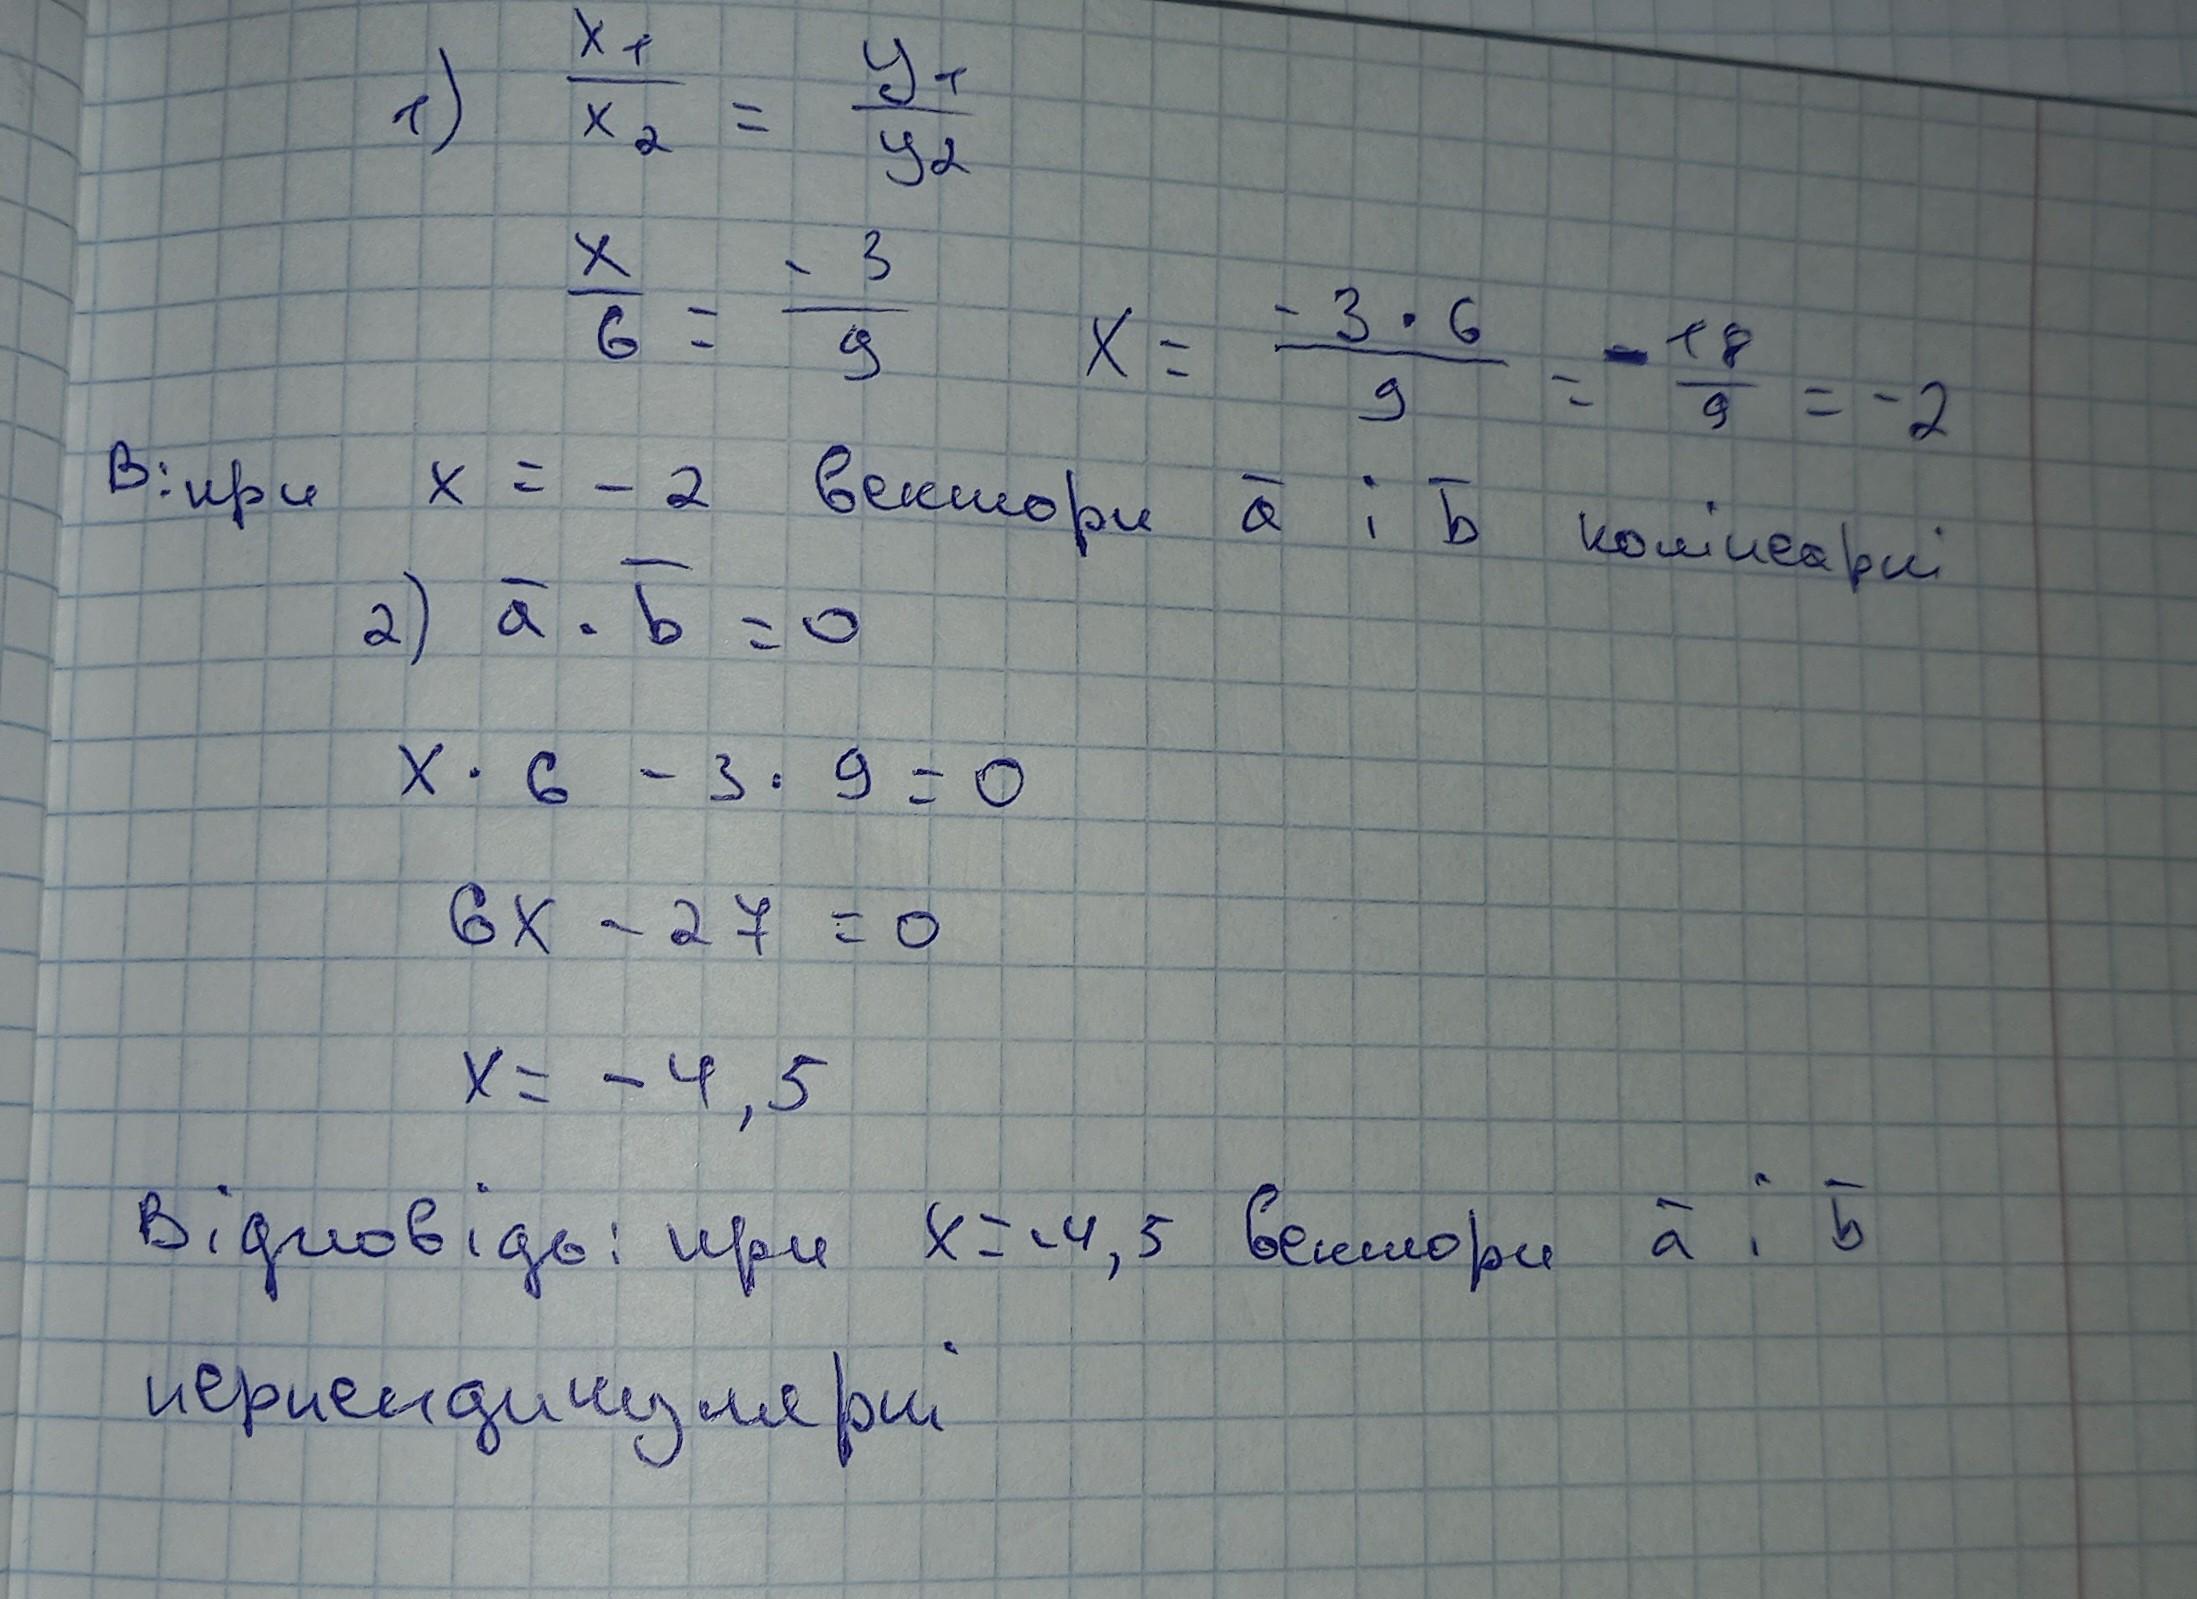 1) x₁/x₂ = y₁/y₂
x/6 = -3/9 x = -3·6/9 = -18/9 = -2
В: при x = -2 вектори a̅ і b̅ колінеарні
2) a̅ · b̅ = 0
x · 6 - 3 · 9 = 0
6x - 27 = 0
x = -4,5
Відповідь: при x = -4,5 вектори a̅ і b̅
перпендикулярні